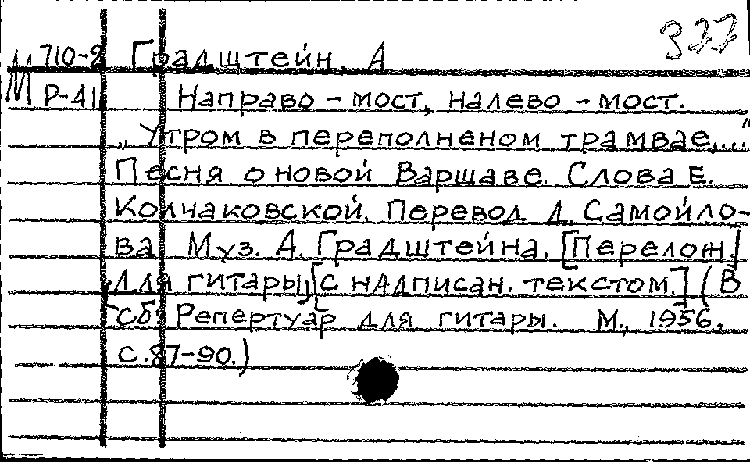 333
М 710-2 Градштейн, А
Р-41 Направо - мост, налево - мост.
„Утром в переполненом трамвае,..."
Песня о новой Варшаве. Слова Е.
Колчаковской. Перевод Д. Самойло-
ва Муз. А. Градштейна. [Перелож.]
для гитары, [с надписан. текстом.] (В
сб: Репертуар для гитары. М., 1956,
с. 87-90.)